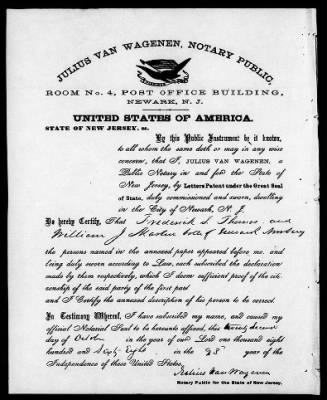 JULIUS VAN WAGENEN, NOTARY PUBLIC,
ROOM No. 4, POST OFFICE BUILDING,
NEWARK, N. J.
UNITED STATES OF AMERICA.
STATE OF NEW JERSEY, ss.
By this Public Instrument be it known,
to all whom the same doth or may in any wise
concern, that I, JULIUS VAN WAGENEN, a
Public Notary in and for the State of
New Jersey, by Letters Patent under the Great Seal
of State, duly commissioned and sworn, dwelling
in the City of Newark, N. J.
Do hereby Certify, That Frederick S. and
William J Martin both of Newark
the persons named in the annexed paper appeared before me, and
being duly sworn according to Law, each subscribed the declaration
made by them respectively, which I deem sufficient proof of the citi-
zenship of the said party of the first part
and I Certify the annexed description of his person to be correct.
In Testimony Whereof, I have subscribed my name, and caused my
official Notarial Seal to be hereunto affixed, this twenty second
day of October in the year of our Lord one thousand eight
hundred and Sixty Eight in the 93 year of the
Independence of these United States.
Julius Van Wagenen
Notary Public for the State of New Jersey.